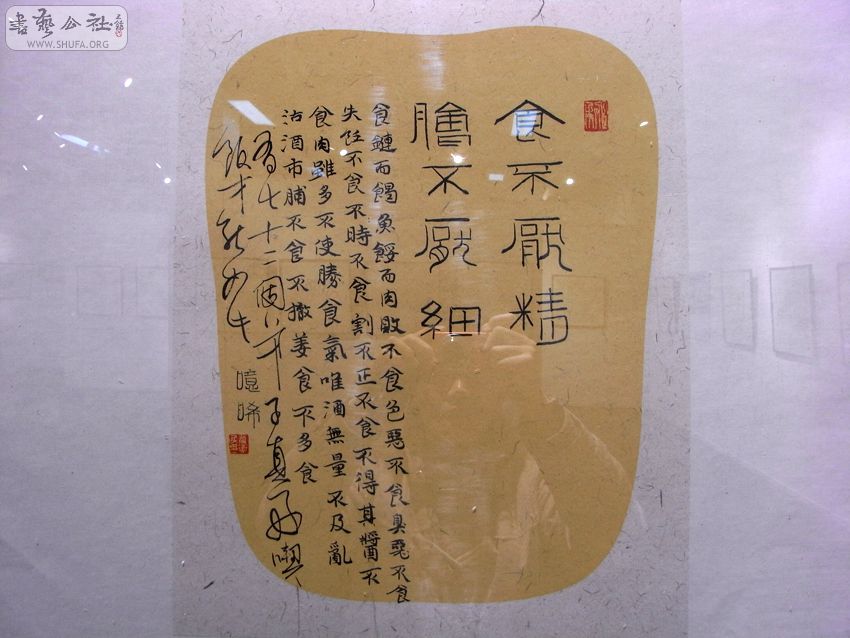 食不厭精
膾不厭細
食饐而餲魚餒而肉敗不食色惡不食臭惡不食
失飪不食不時不食割不正不食不得其醬不
食肉雖多不使勝食氣唯酒無量不及亂
沽酒市脯不食不撤姜食不多食
七十二個
子真好喫
飯
書藝公社
WWW.SHUFA.ORG